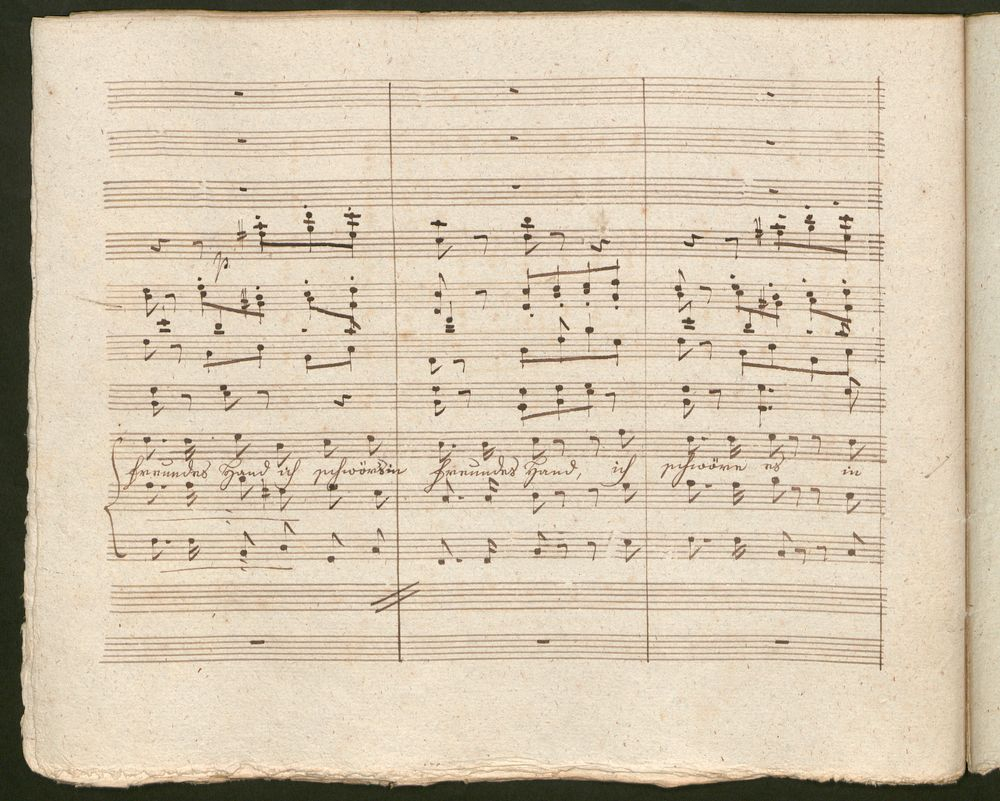 p
freundes Hand ich schwörs in freundes Hand, ich schwöre es in